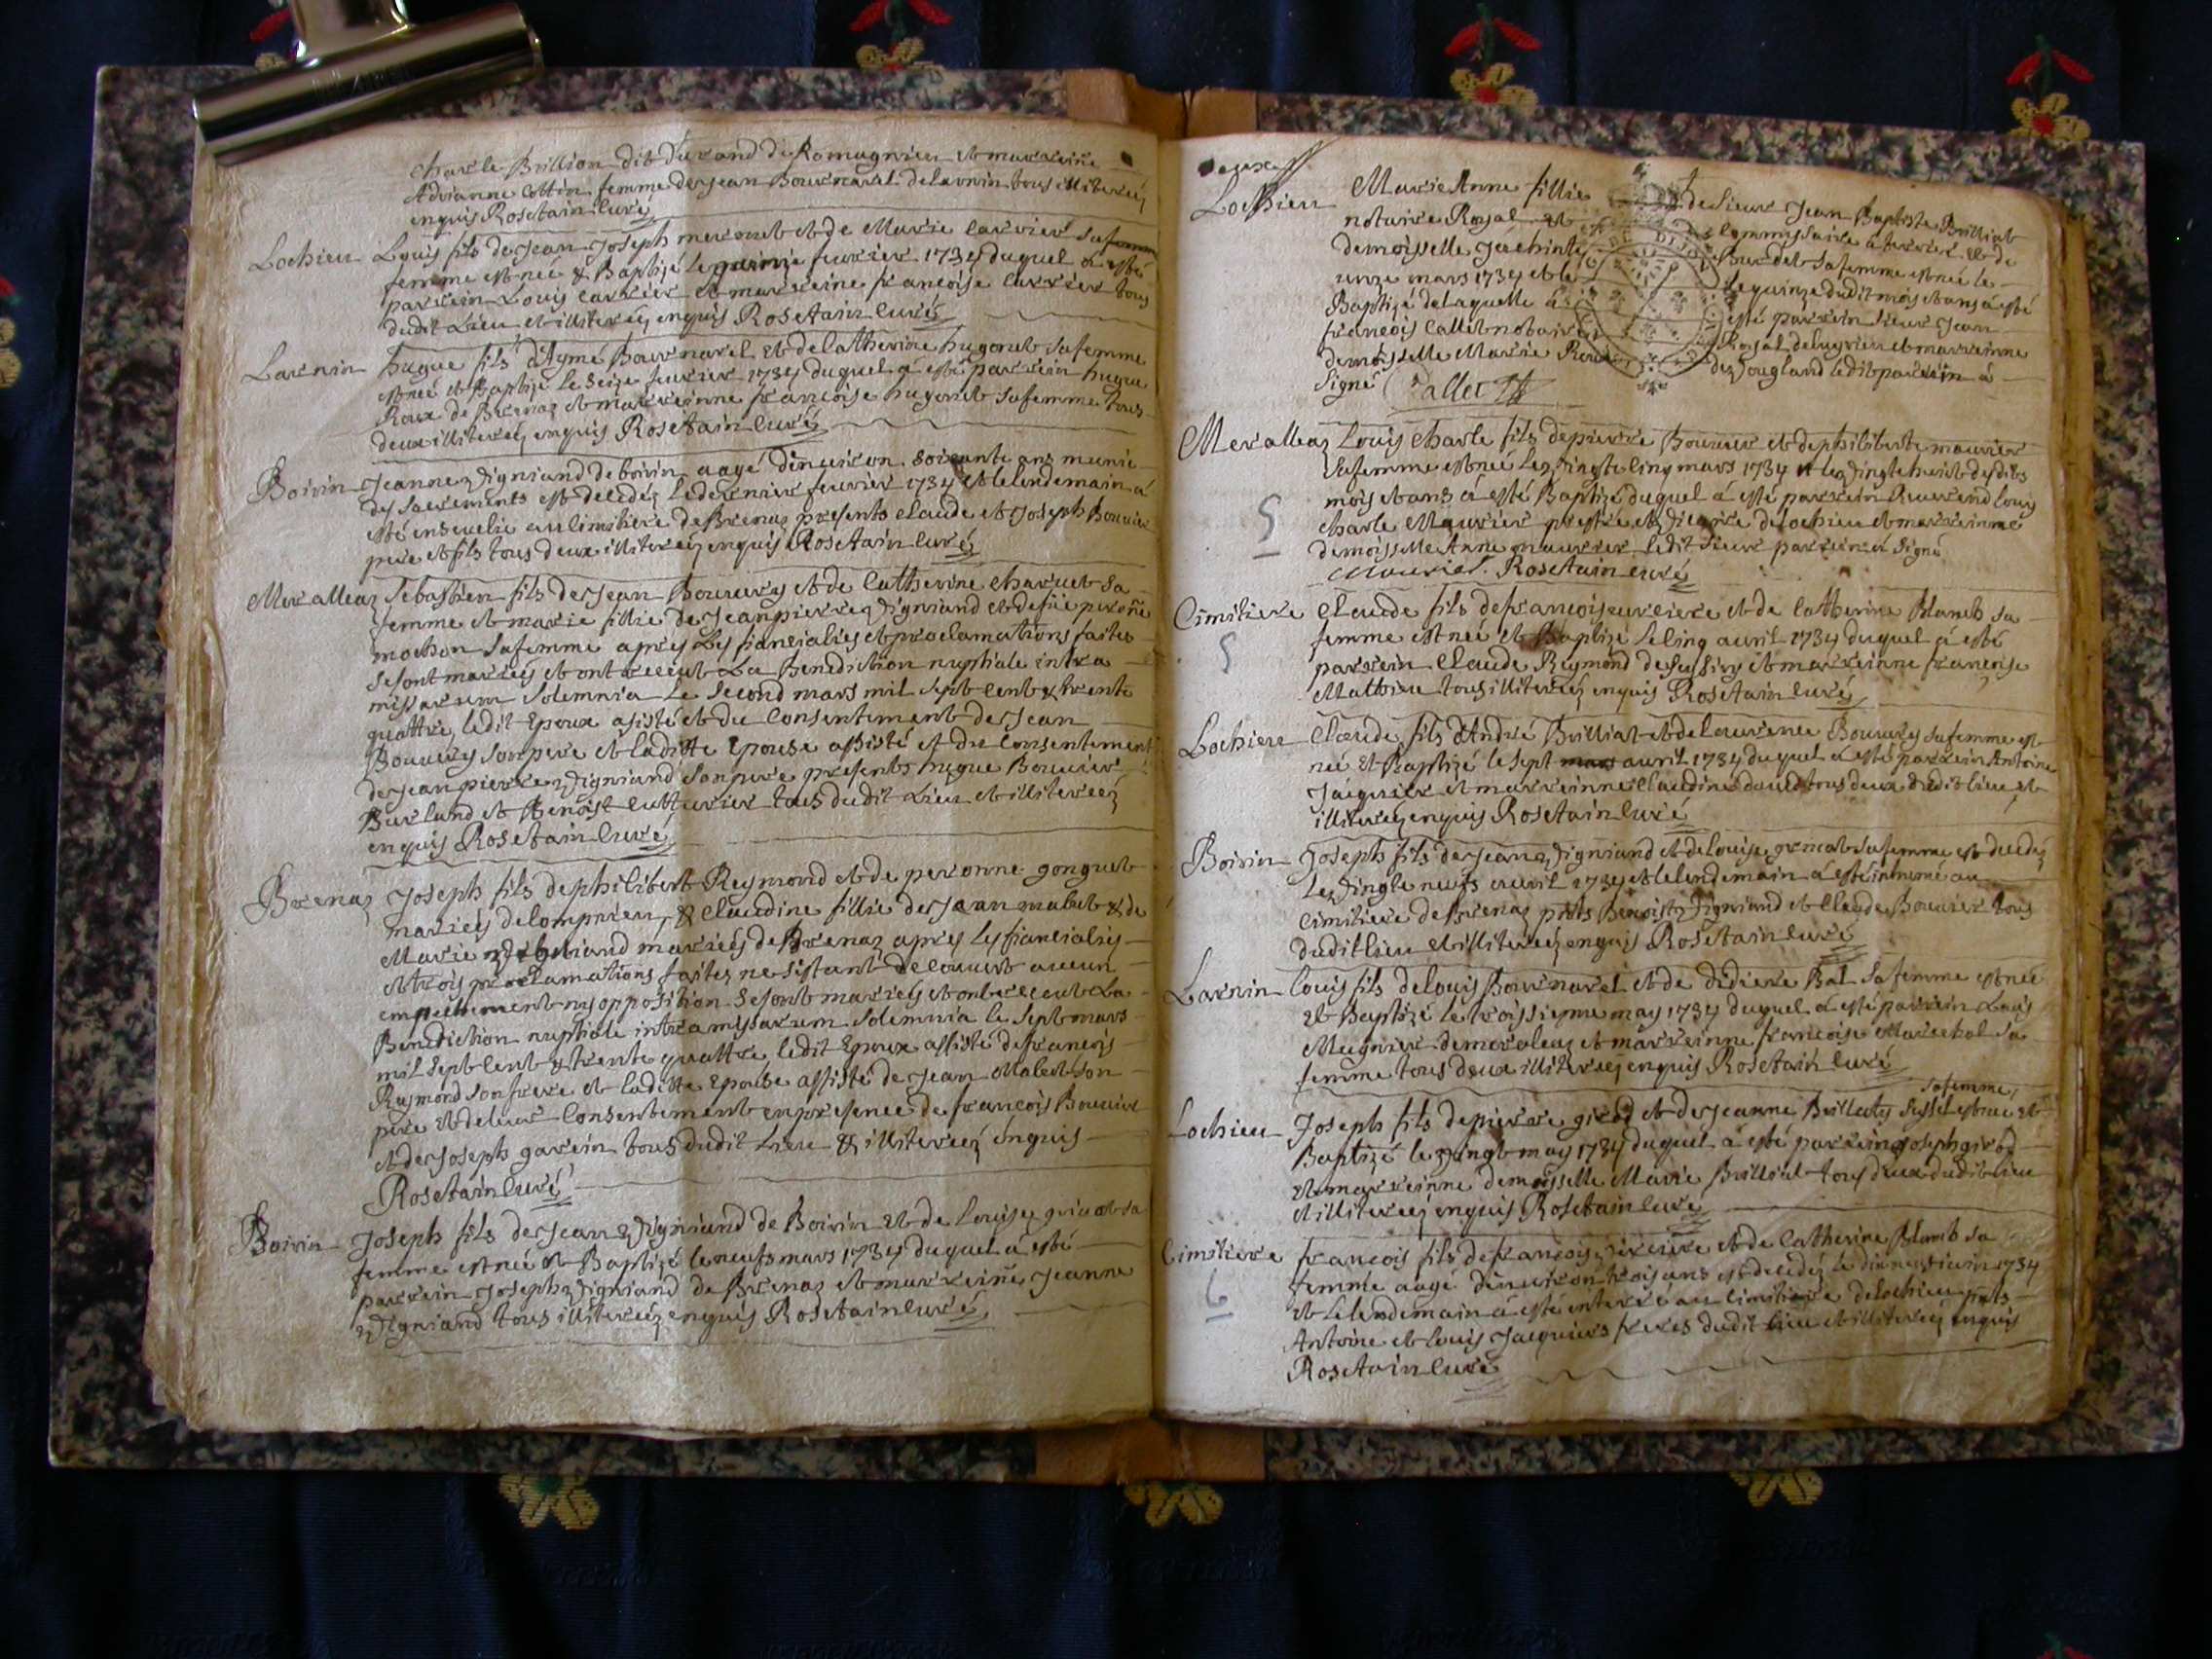 charle Brillion dit durand de Romagnieu et marreine
Adrianne Cottin femme de Jean Bournarel de larnin tous illiterez
enquis Rosetain curé
Lochieu Louis fils de Jean Joseph et de Marie carrier sa
femme est neé & Baptizé le quinze feurier 1734 duquel a esté
parrein Louis carrier et marreine francoise carrier tous
dudit Lieu et illiterez enquis Rosetain curé
Larnin hugue fils d'Aymé Bournarel et de Catherine hugonet sa femme
est neé et Baptizé le seize feurier 1734 duquel á esté parrein hugue
Roux de Brenaz et marreinne francoise hugonet sa femme tous
deux illiterez enquis Rosetain curé
Boirin Jeanne Vigniand de boirin aagé d'enuiron soixante ans munie
des sacrements est decedez le dernier feurier 1734 et le lendemain á
esté enseuelie au cimitiere de Brenaz presents claude et Joseph Bouuier
pere et fils tous deux illiterez enquis Rosetain curé
Meralleaz Sebastien fils de Jean Bouuery et de Catherine Charuet sa
femme et marie fillie de Jean pierre Vigniand et de
mochon sa femme apres Les fiancialies et proclamations faites
se sont marieés et ont receut La Benediction nuptiale intra
missarum solemnia Le second mars mil sept cent & trente
quattre, ledit Epoux asisté et du Consentement de Jean
Bouuery son pere et laditte Epouse assisté et du consentement
de Jean pierre Vigniand son pere presents hugue Bouuier
Burland et Benoist cutturier tous dudit Lieu et illiterez
enquis Rosetain Curé
Brenaz Joseph fils de philibert Reymond et de peronne gonguet
marieés de lompnieu, & claudine fillie de Jean malet & de
Marie Vigniand marieés de Brenaz apres Les fiancialies
et trois proclamations faites ne s'estant decouuert aucun
empechement ny opposition se sont marieés et ont receut La
Benediction nuptiale intra missarum solemnia le sept mars
mil sept cent & trente quattre ledit Epoux assisté de francois
Reymond son frere et laditte Epouse assisté de Jean Malet son
pere et de leur Consentement en presence de francois Bouuier
et de Joseph garein tous dudit Lieu & illiterez enquis
Rosetain Curé
Boirin Joseph fils de Jean Vigniand de Boirin et de Louise sa
femme est neé et Baptizé le neufs mars 1734 duquel á esté
parrein Joseph Vigniand de Brenaz et marreine Jeanne
Vigniand tous illiterez enquis Rosetain curé
deux
Lochieu Marie Anne fillie de Sieur Jean Baptiste Brilliat
notaire Royal et Commissaire a terrier & de
demoisselle Jachinte sa femme est neé le
unze mars 1734 et le quinze dudit mois et ans á esté
Baptizé de laquelle á esté parrein sieur Jean
francois Callet notaire Royal de lugrieu et marreinne
demoisselle Marie Vougland ledit parrein á
signé Callet
Meralleaz Louis Charle fils de pierre Bouuier et de philiberte maurier
sa femme est neé le Vingte cinq mars 1734 et le Vingte huict desdits
mois et ans á esté Baptizé duquel á esté parrein Reuerend Louis
charle Maurier prestre et Vicaire de lochieu et marreinne
demoisselle Anne maurier ledit sieur parrein á signé
Rosetain curé
5
Cimitiere Claude fils de francois et de Catherine Blanct sa
femme est neé et Baptizé le cinq auril 1734 duquel á esté
parrein Claude Reymond de et marreinne francoise
tous illiterez enquis Rosetain curé
5
Lochieu Claude fils d'André Brilliat et de laurence Bouuery sa femme est
neé et Baptizé le sept mars auril 1734 duquel á esté parrein Antoine
Jaiquier et marreinne Claudine tous deux dudit lieu et
illiterez enquis Rosetain curé
Boirin Joseph fils de Jean Vigniand et de louise sa femme est decedez
le Vingte neufs auril 1734 et le lendemain á esté inhumé au
cimitiere de Brenaz pnts Benoist Vigniand et Claude Bouuier tous
dudit lieu et illiterez enquis Rosetain curé
Larnin louis fils de louis Bournarel et de didiere Bal sa femme est neé
et Baptizé le troissieme may 1734 duquel á esté parrein Louis
Meugnier de meraleaz et marreinne francoise Marechal sa
femme tous deux illiterez enquis Rosetain curé
sa femme,
Lochieu Joseph fils de pierre girod et de Jeanne est neé et
Baptizé le Vingt may 1734 duquel á esté parrein Joseph girod
et marreinne demoisselle Marie Brilliat tous deux dudit lieu
et illiterez enquis Rosetain curé
Cimitiere francois fils de francois et de Catherine Blanct sa
femme aagé d'enuiron trois ans est decedez le dixneuf iuin 1734
et le lendemain á esté interré au cimitiere de lochieu pnts
Antoine et louis Jacquiers freres dudit lieu et illiterez enquis
Rosetain Curé
6